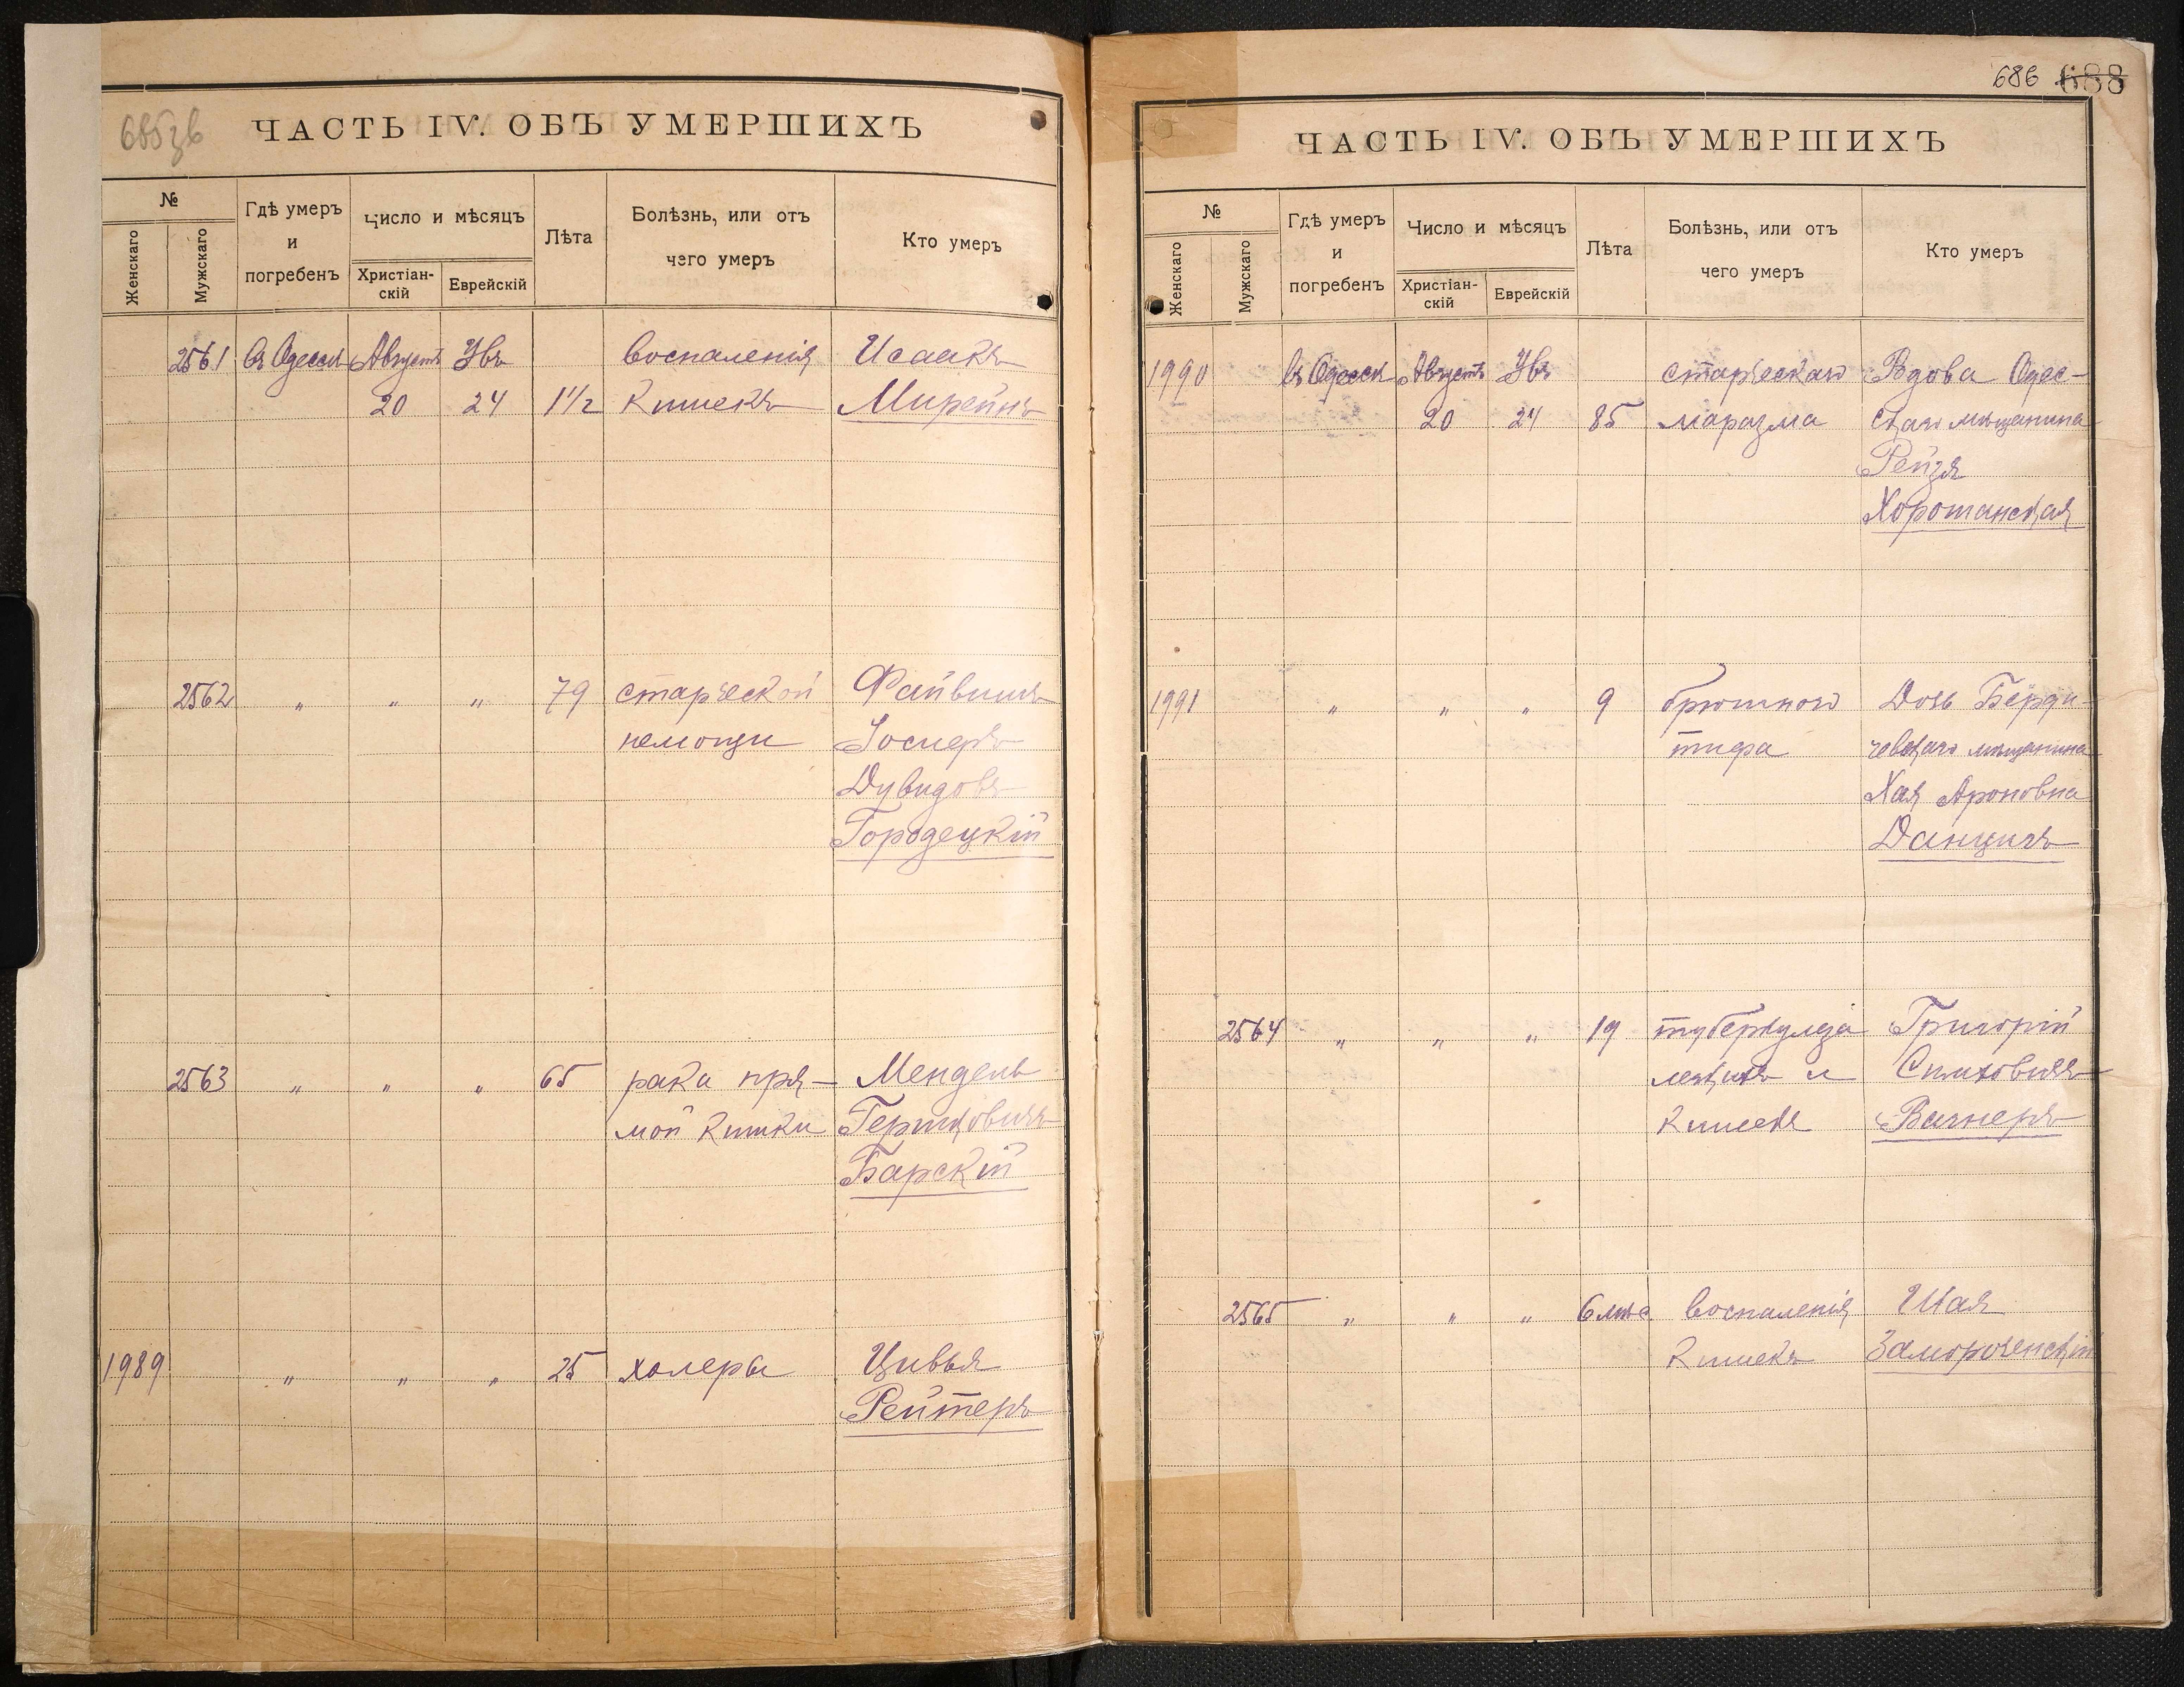 ЧАСТЬ IV. ОБЪ УМЕРШИХЪ
№
Женскаго
Мужскаго
Гдѣ умеръ
и
погребенъ
Число и мѣсяцъ
Христіан-
скій
Еврейскій
Лѣта
Болѣзнь, или отъ
чего умеръ
Кто умеръ
2561 въ Одессѣ Августъ Увъ воспаленія Исаакъ
20 24 1 1/2 кишекъ Мирейнъ
2562 " " " 79 старческой Файвишъ
немощи Іосиеръ
Дувидовъ
Городецкій
2563 " " " 65 рака пря- Мендель
мой кишки Гершковичъ
Барскій
1989 " " " 25 холеры Цивья
Рейтеръ
686 688
ЧАСТЬ IV. ОБЪ УМЕРШИХЪ
№
Женскаго
Мужскаго
Гдѣ умеръ
и
погребенъ
Число и мѣсяцъ
Христіан-
скій
Еврейскій
Лѣта
Болѣзнь, или отъ
чего умеръ
Кто умеръ
1990 въ Одессѣ Августъ Увъ старческаго Вдова Одес-
20 24 85 маразма скаго мѣщанина
Рейзя
Хорошанская
1991 " " " 9 брюшного Дочь Берди-
тифа чевскаго мѣщанина
Хая Ароновна
Данцигъ
2564 " " " 19 туберкулеза Григорій
легкихъ и
кишекъ Вагнеръ
2565 " " " 6 мѣс. воспаленія Шая
кишекъ Замороченскій